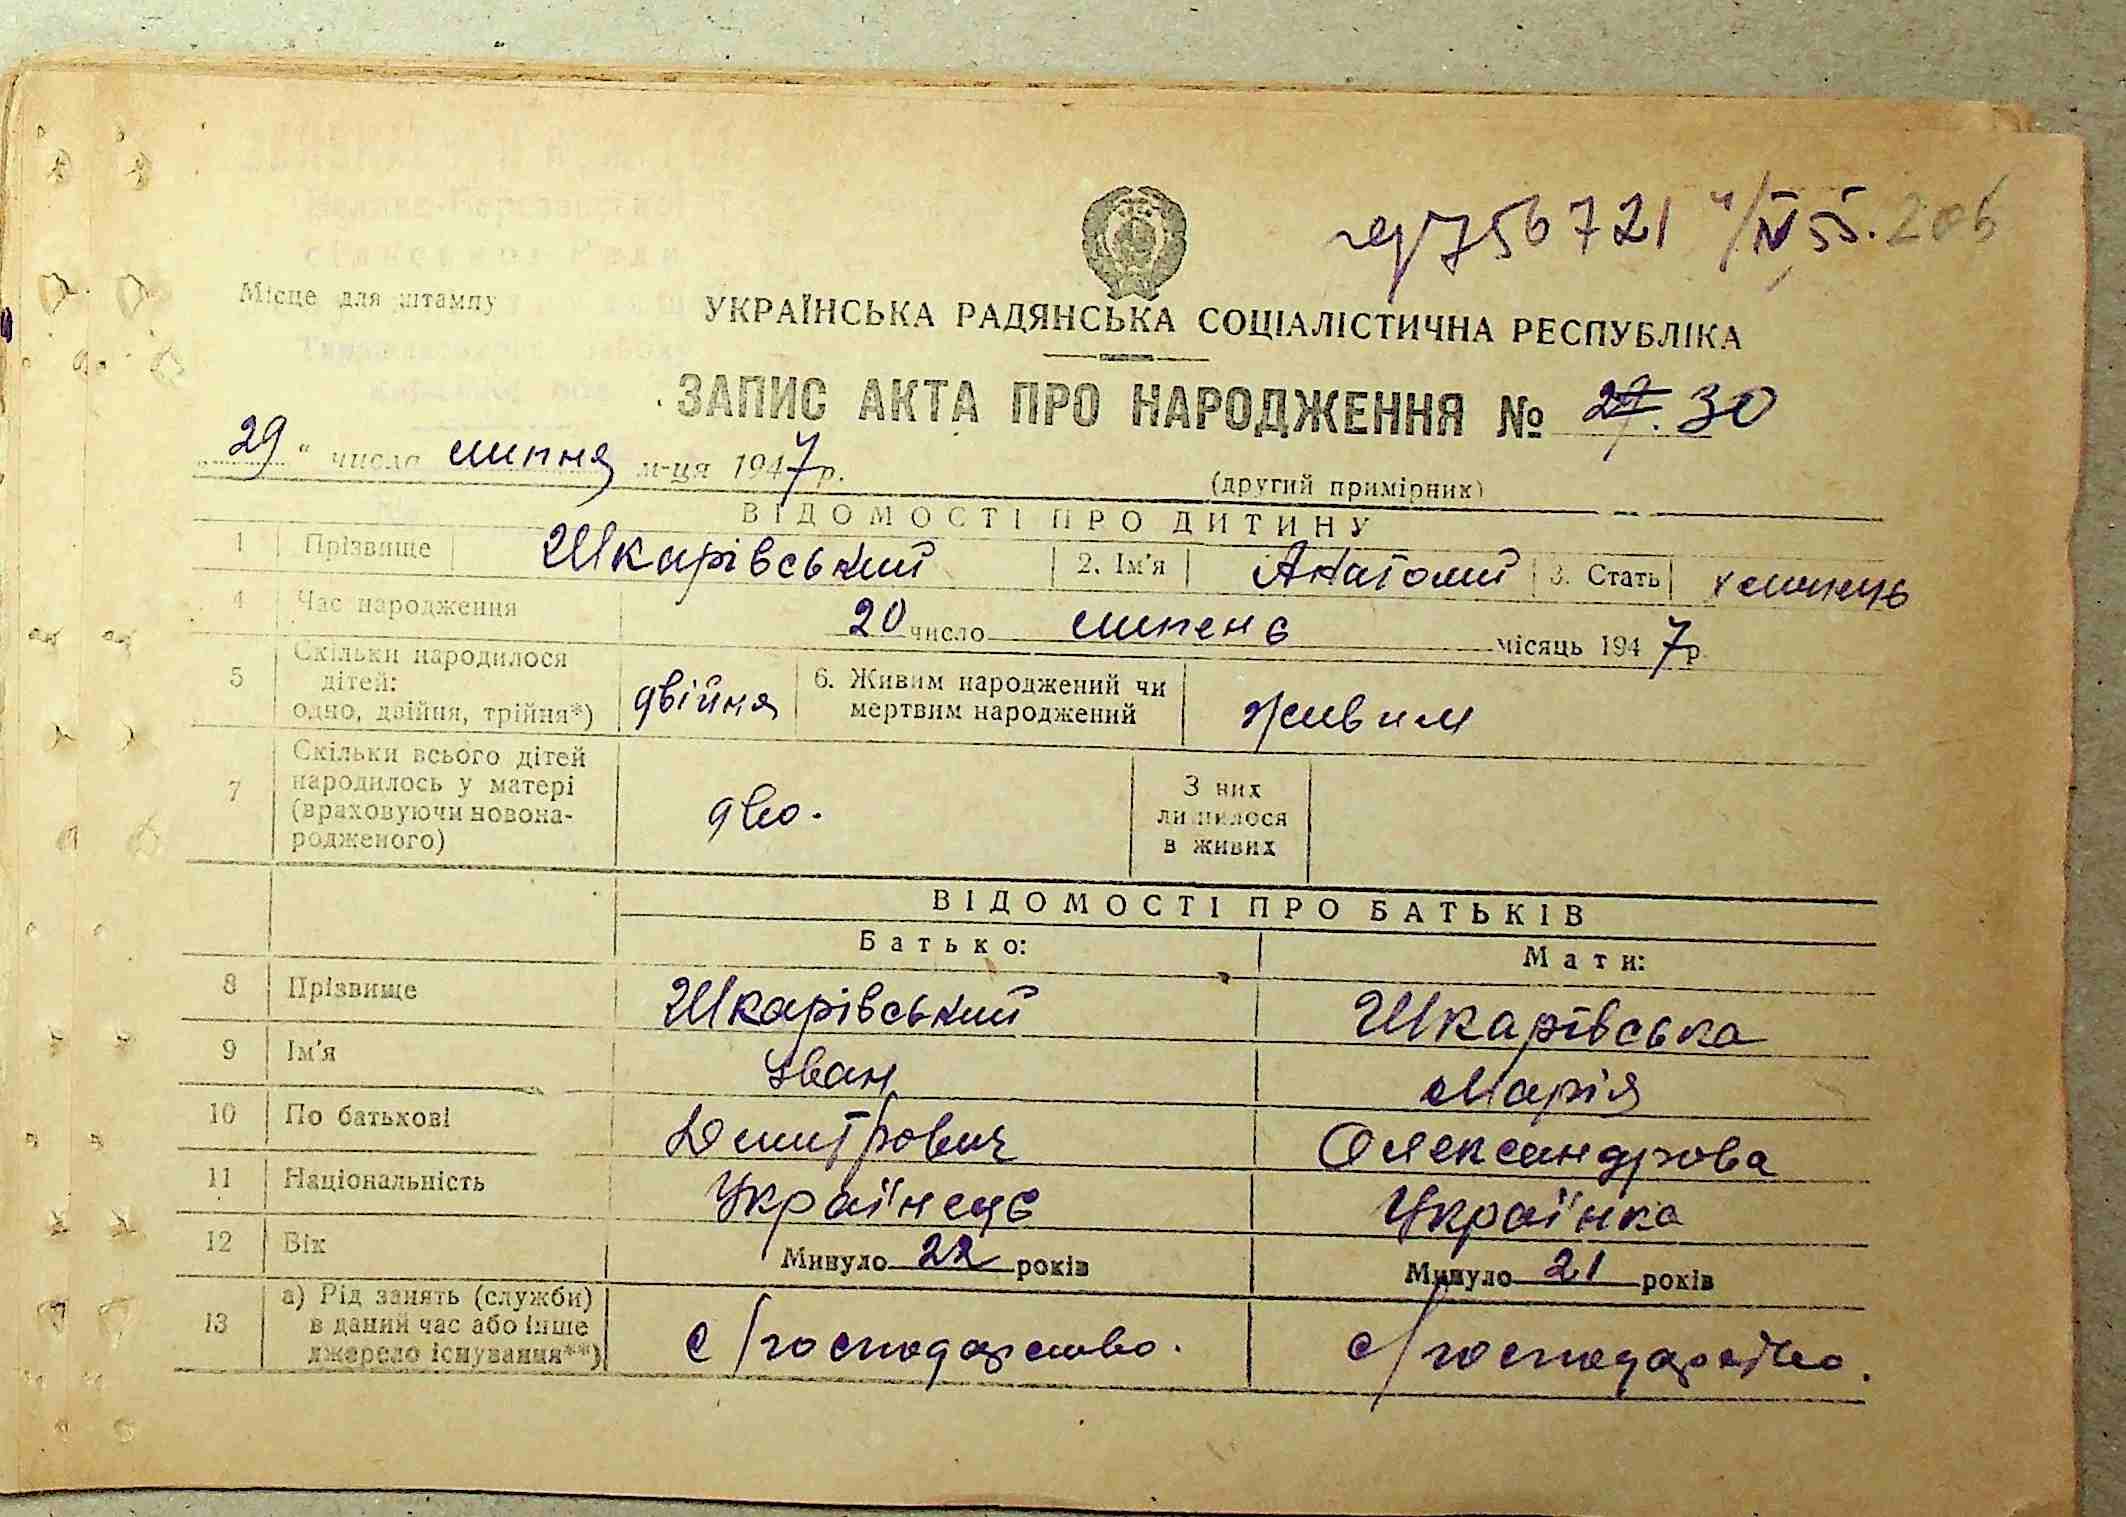 756721 IV 55. 206
Місце для штампу
УКРАЇНСЬКА РАДЯНСЬКА СОЦІАЛІСТИЧНА РЕСПУБЛІКА
ЗАПИС АКТА ПРО НАРОДЖЕННЯ № 27. 30
„29“ числа липня м-ця 1947 р.
(другий примірник)
ВІДОМОСТІ ПРО ДИТИНУ
1 Прізвище Шкарівський 2. Ім'я Анатолий 3. Стать
4 Час народження 20 число липень місяць 1947 р.
5 Скільки народилося дітей: одно, двійня, трійня*) двійня 6. Живим народжений чи мертвим народжений живим
7 Скільки всього дітей народилось у матері (враховуючи новонародженого) двоє. З них лишилося в живих
ВІДОМОСТІ ПРО БАТЬКІВ
Батько: Мати:
8 Прізвище Шкарівський Шкарівська
9 Ім'я Іван Марія
10 По батькові Дмитрович Олександрова
11 Національність Українець Українка
12 Вік Минуло 22 років Минуло 21 років
13 а) Рід занять (служби) в даний час або інше джерело існування**) с/господарство. с/господарство.